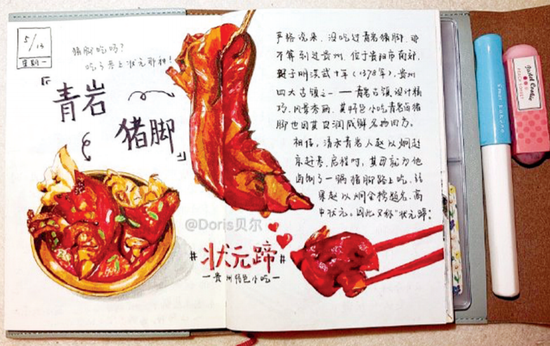 5/14
星期一
猪脚吃吗?
吃了马上状元那种!
「青岩
猪脚」
严格说来,没吃过青岩猪脚,那
不算到过贵州。位于贵阳市南郊,
建于明洪武十年(1378年),贵州
四大古镇之一——青岩古镇,设计精
巧,风景秀丽,其特色小吃青岩卤猪
脚也因其
相传,清末青岩人赵以炯赴
京赶考,启程时,其母亲为他
卤制了一锅猪脚路上吃,结
果赵以炯金榜题名,高
中状元。因此又称"状元蹄"
@Doris贝尔
#状元蹄#
—贵州特色小吃—